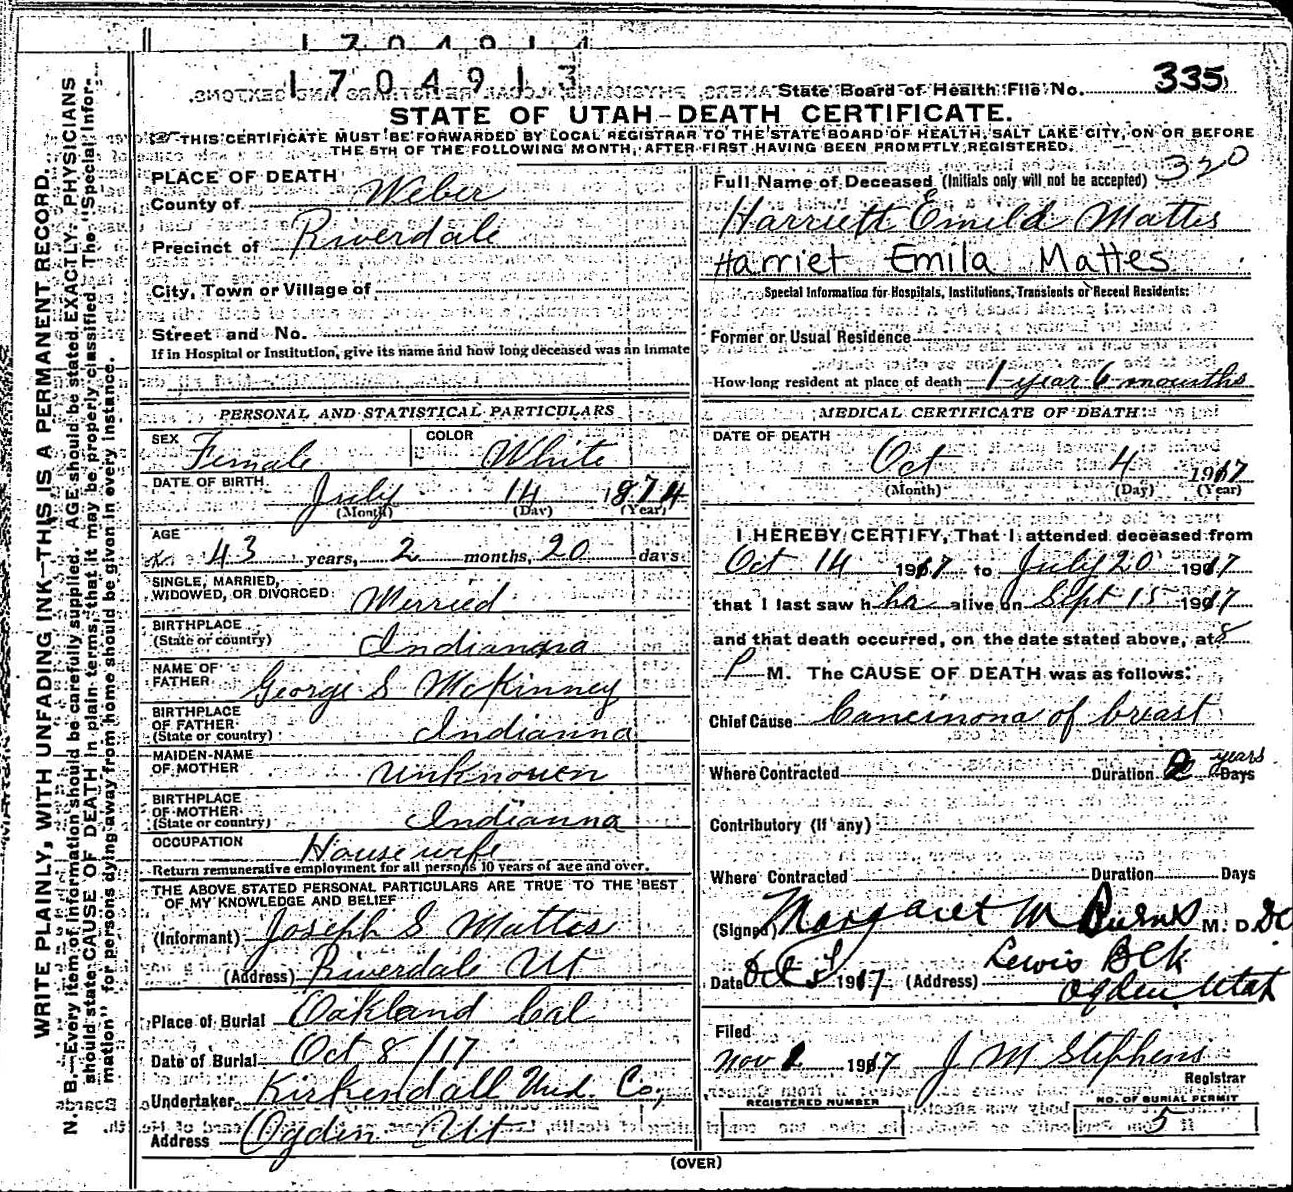 1704914
1704913
State Board of Health File No. 335
STATE OF UTAH-DEATH CERTIFICATE.
THIS CERTIFICATE MUST BE FORWARDED BY LOCAL REGISTRAR TO THE STATE BOARD OF HEALTH, SALT LAKE CITY, ON OR BEFORE
THE 5TH OF THE FOLLOWING MONTH, AFTER FIRST HAVING BEEN PROMPTLY REGISTERED.
WRITE PLAINLY, WITH UNFADING INK—THIS IS A PERMANENT RECORD.
N. B.—Every item of information should be carefully supplied. AGE should be stated EXACTLY. PHYSICIANS
should state CAUSE OF DEATH in plain terms, that it may be properly classified. The "Special Infor-
mation" for persons dying away from home should be given in every instance.
PLACE OF DEATH
County of Weber
Precinct of Riverdale
City, Town or Village of
Street and No.
If in Hospital or Institution, give its name and how long deceased was an inmate
PERSONAL AND STATISTICAL PARTICULARS
SEX Female COLOR White
DATE OF BIRTH July 14 1874
(Month) (Day) (Year)
AGE
43 years, 2 months, 20 days
SINGLE, MARRIED,
WIDOWED, OR DIVORCED Merried
BIRTHPLACE
(State or country) Indianna
NAME OF
FATHER George S McKinney
BIRTHPLACE
OF FATHER
(State or country) Indianna
MAIDEN-NAME
OF MOTHER unknowen
BIRTHPLACE
OF MOTHER
(State or country) Indianna
OCCUPATION House wife
Return remunerative employment for all persons 10 years of age and over.
THE ABOVE STATED PERSONAL PARTICULARS ARE TRUE TO THE BEST
OF MY KNOWLEDGE AND BELIEF
(Informant) Joseph S Mattes
(Address) Riverdale Ut
Place of Burial Oakland Cal
Date of Burial Oct 8/17
Undertaker Kirkendall Und. Co,
Address Ogden Ut
320
Full Name of Deceased (Initials only will not be accepted)
Harriett Emild Mattes
Harriet Emila Mattes
Special Information for Hospitals, Institutions, Transients or Recent Residents:
Former or Usual Residence
How long resident at place of death 1 year 6 mounths
MEDICAL CERTIFICATE OF DEATH
DATE OF DEATH
Oct 4 1917
(Month) (Day) (Year)
I HEREBY CERTIFY, That I attended deceased from
Oct 14 1917 to July 20 1917
that I last saw h her alive on Sept 15 1917
and that death occurred, on the date stated above, at 8
P M. The CAUSE OF DEATH was as follows:
Chief Cause Carcinona of breast
Where Contracted Duration 2 years Days
Contributory (If any)
Where Contracted Duration Days
(Signed) Margaret M Burns M. D.
Date Oct 1917 (Address) Lewis Blk
Ogden Utah
Filed
Nov 1917 J M Stephens
Registrar
REGISTERED NUMBER
NO. OF BURIAL PERMIT
5
(OVER)